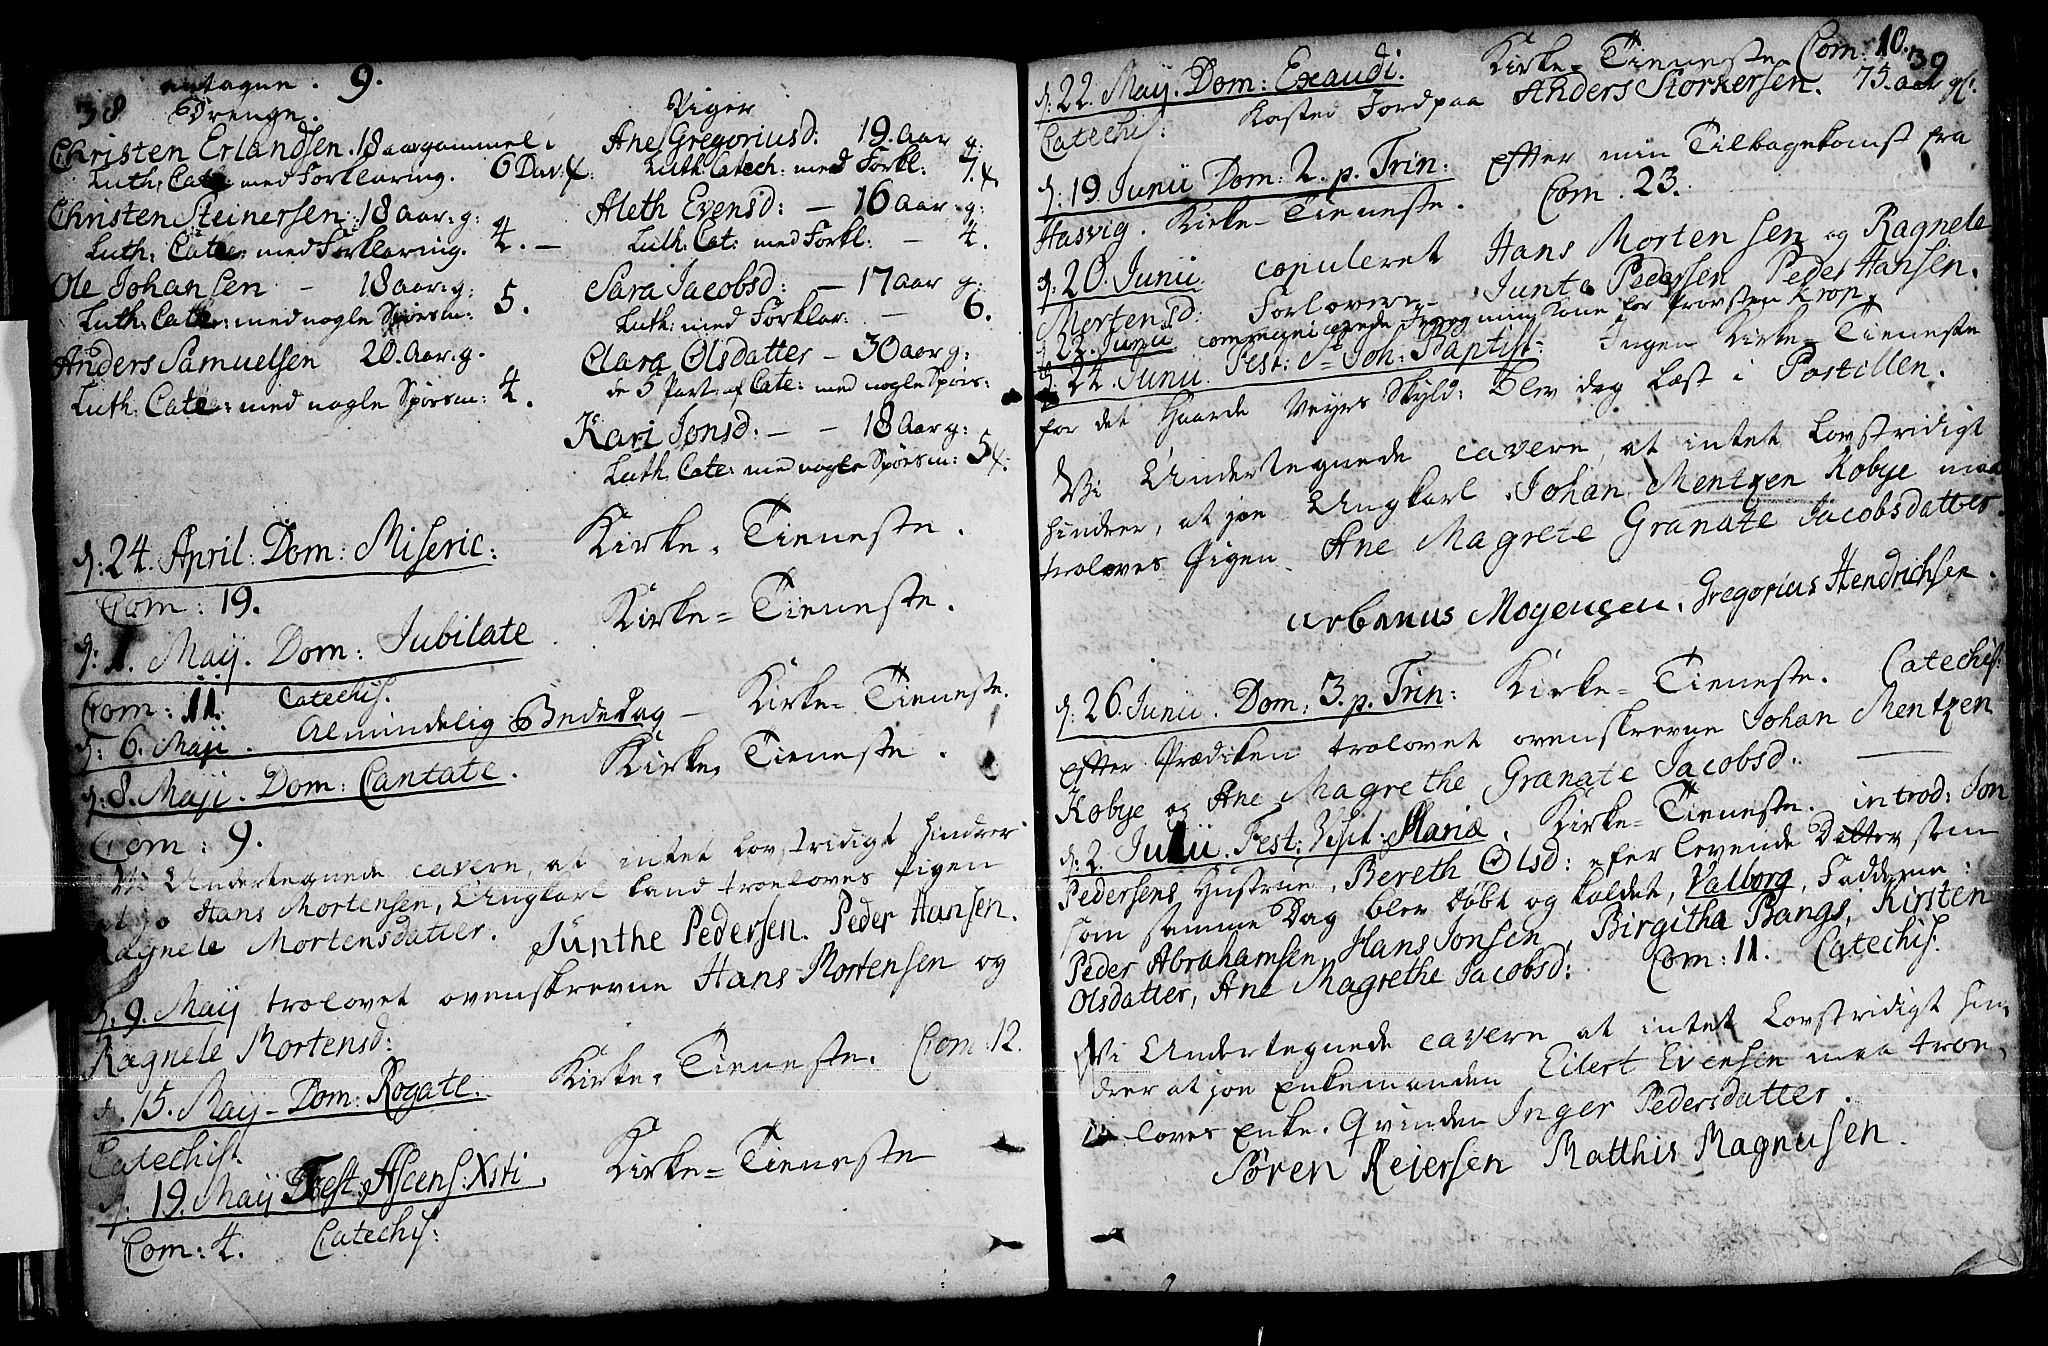 38 antagne. 9.
Drenge.
Christen Erlandsen. 18 aar gammel.
Luth: Cate: med Forklaring. 6 Dav.
Christen Steinersen: 18 aar: g:
Luth: Cate: med Forklaring. 4. –
Ole Johansen – 18 aar: g:
Luth: Cate: med nogle Spørsm: 5.
Anders Samuelsen 20. Aar. g.
Luth: Cate: med nogle Spørsm: 4.
Piger
Ane Gregoriusd: 19. Aar g:
Luth: Catech: med Forkl: 7.
Aleth Evensd: – 16 aar. g:
Luth: Cat: med Forkl: – 4.
Sara Jacobsd: – 17 aar g:
Luth: med Forklar: – 6.
Clara Olsdatter – 30 aar g:
de 5 Part. af Cate: med nogle Spørs:
Kari Jonsd: – – 18 Aar g:
Luth. Cate: med nogle Spørsm: 5
d: 24. April. Dom: Miseric: Kirke-Tieneste.
Com: 19.
d: 1. Maij. Dom: Jubilate Kirke-Tieneste.
Com: 11. Catechis.
d: 6. Maji. Almindelig Bededag – Kirke-Tieneste.
d: 8. Maji. Dom: Cantate. Kirke-Tieneste.
Com: 9.
Vi Undertegnede cavere, at intet Lovstridigt hindrer
at jo Hans Mortensen, Ungkarl kand troeloves Pigen
Ragnele Mortensdatter. Junthe Pedersen. Peder Hansen.
d. 9. Maij trolovet ovenskrevne Hans Mortensen og
Ragnele Mortensd:
d. 15. Maij – Dom: Rogate. Kirke-Tieneste. Com: 12.
Catechis.
d: 19. Maij Fest: Ascens: Xsti. Kirke-Tieneste
Com: 4. Catechis:
39
d: 22. Maij. Dom: Exaudi. Kirke-Tieneste Com: 10.
Catechis: Kasted Jord paa Anders Storkersen. 75. aar gl.
d: 19 Junii Dom: 2. p. Trin: Efter min Tilbagekomst fra
Hasvig. Kirke-Tieneste. Com. 23.
d: 20. Junii copuleret Hans Mortensen og Ragnele
Mortensd: Forlovere Junte Pedersen Peder Hansen.
d 22. Junii communicerede Jeg og min Kone for Provsten Krop
d. 24. Junii. Fest: St Joh: Baptist: Ingen Kirke-Tieneste
for det Haarde Veyrs Skyld: blev dog Læst i Postillen.
Vi Undertegnede cavere, at intet Lovstridigt
hindrer, at joe Ungkarl Johan Mentzen Kobye maa
troloves Pigen Ane Magrete Granate Jacobsdatter.
Urbanus Mogensen. Gregorius Hendrichsen.
d: 26. Junii. Dom: 3. p. Trin: Kirke-Tieneste. Catechis:
Efter Prædiken trolovet ovenskrevne Johan Mentzen
Kobye og Ane Magrethe Granate Jacobsd:
d: 2. Julii. Fest: Visit: Mariæ. Kirke-Tieneste. introd: Jon
Pedersens Hustrue, Bereth Olsd: efter levende Datter som
som samme Dag blev døbt og kaldet, Valborg, Faddere:
Peder Abrahamsen, Hans Jonsen, Birgitha Bangs, Kirsten
Olsdatter, Ane Magrethe Jacobsd: Com: 11. Catechis.
Vi Undertegnede cavere at intet Lovstridigt hin-
drer at joe Enkemanden Eilert Evensen maa troe-
loves Enke-Qvinden Inger Pedersdatter.
Søren Reiersen Matthis Magnusen.